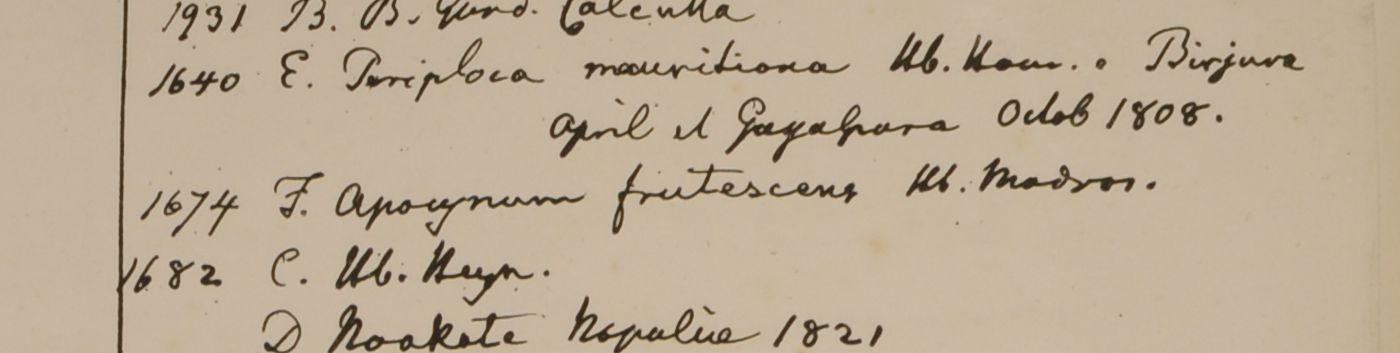 1931 B. B. Gund. Calcutta
1640 E. Periploca mauritiana Hb. Ham. e Birjura
April et Gayalpara Octob 1808.
1674 F. Apocynum frutescens Hb. Madras.
1682 C. Hb. Heyn.
D Noakote Napaliae 1821